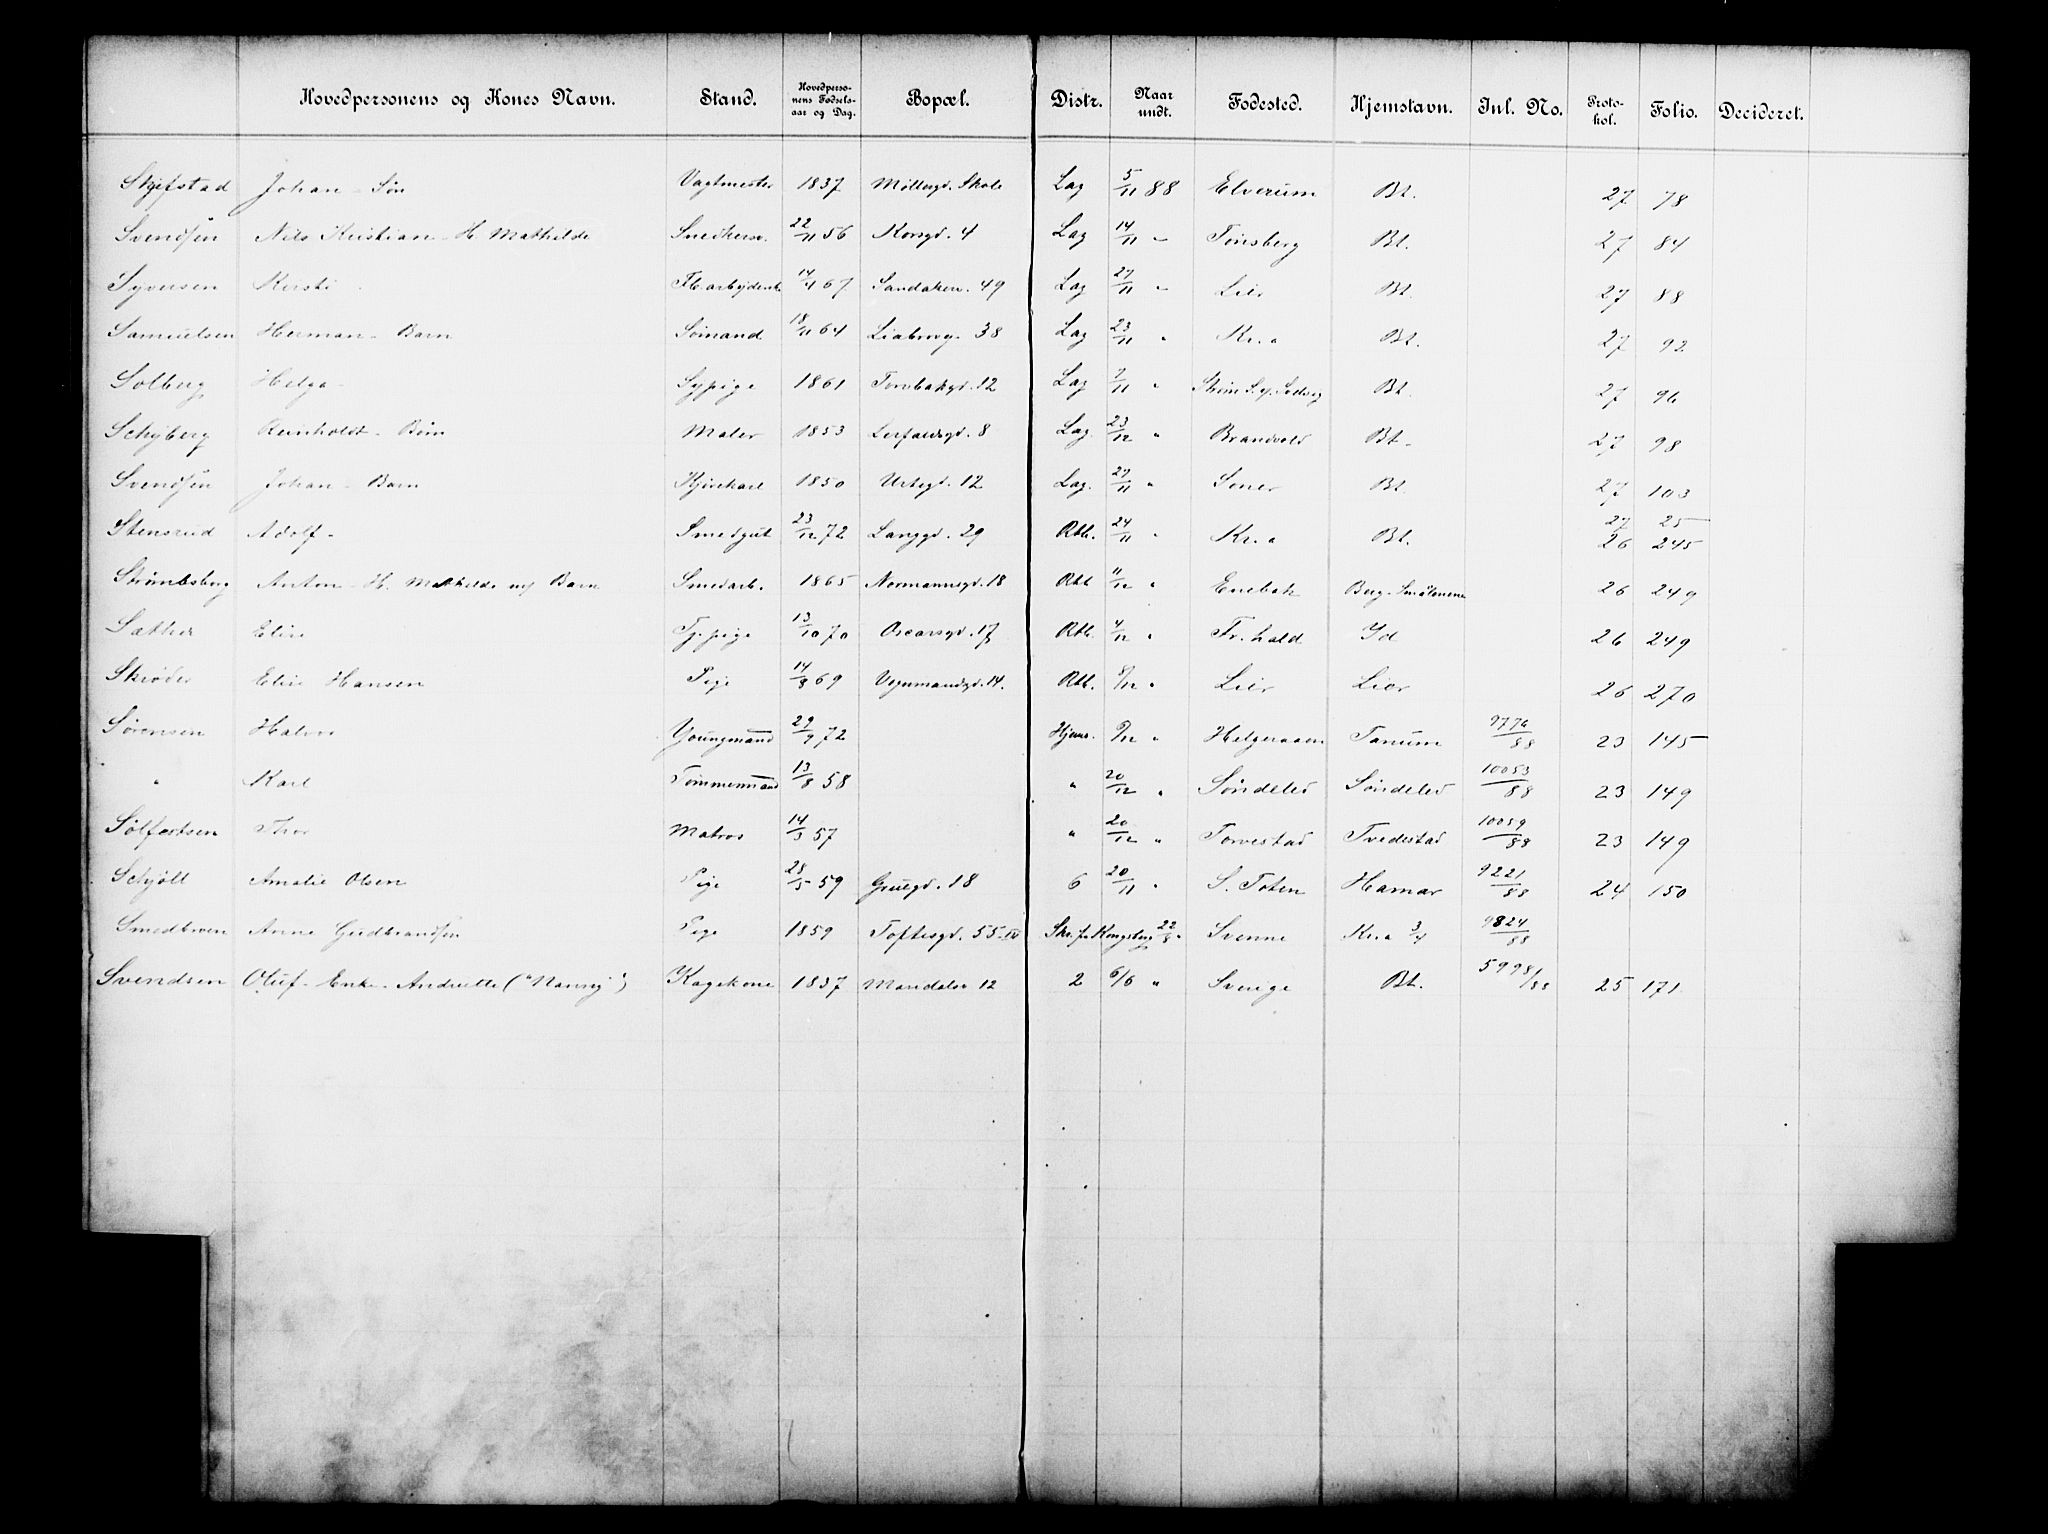 Hovedpersonens og Kones Navn. Stand. Hovedperso-nens Fødsels-aar og Dag. Bopæl. Distr. Naar undt. Fødested. Hjemstavn. Inl. No. Proto-kol. Folio. Decideret.
Skjefstad Johan - Søn Vagtmester 1837 Møllergd. Skole Lag 5/11 88 Elverum Bt. 27 78
Svendsen Nils Kristian - H. Mathilde Snedkersv. 22/11 56 Korsgd. 4 Lag 14/11 " Tønsberg Bt. 27 84
Syversen Kirsti Fb.arbejdersk. 14/4 67 Sandakerv. 49 Lag 27/11 " Lier Bt. 27 88
Samuelsen Herman - Barn Sømand 18/11 64 Liabrovg. 38 Lag 23/11 " Kr.a Bt. 27 92
Solberg Helga - Sypige 1861 Tornbakgd. 12 Lag 7/11 " Strøm S. Bt. 27 96
Schyberg Reinholdt - Børn Maler 1853 Lerfaldsgd. 8 Lag 23/12 " Brandvold Bt. 27 98
Svendsen Johan - Barn Kjørekarl 1850 Urtegd. 12 Lag. 27/11 " Bt. 27 103
Stensrud Adolf - Smedgut 23/12 72 Langgd. 29 Rtb. 24/11 " Kr.a Bt. 27 25
26 245
Strømbsberg Anton - H. Mathilde m/ Barn Smedarb. 1865 Normannsgd. 18 Rtb 11/12 " Enebak Berg. Smålenene 26 249
Sæther Elise Tj.pige 13/10 70 Oscarsgd. 17 Rtb. 4/12 " Fr.hald Id 26 249
Skrøder Elise Hansen Pige 14/8 69 Vognmandgd. 14. Rtb. 8/12 " Lier Lier 26 270
Sørensen Halvor Youngmand 29/9 72 Hjems. 9/12 " Helgeraaen Tanum 9776/88 23 145
" Karl Tømmermand 13/8 58 " 20/12 " Søndeled Søndeled 10053/88 23 149
Sølfestsen Thor Matros 14/3 57 " 20/12 " Torvestad Tvedestad 10059/88 23 149
Schjöll Amalie Olsen Pige 28/5 59 Gruegd. 18 6 20/11 " S. Toten Hamar 9221/88 24 150
Smedbroen Anne Gudbrandsen Pige 1859 Toftesgd. 55 IV Skr. f. Kongsberg 22/8 " Svenne Kr.a 3/4 9824/88
Svendsen Oluf - Enke - Andrette ("Nanny") Kagekone 1837 Mandalsg 12 2 6/6 " Sverige Bt. 5998/88 25 171